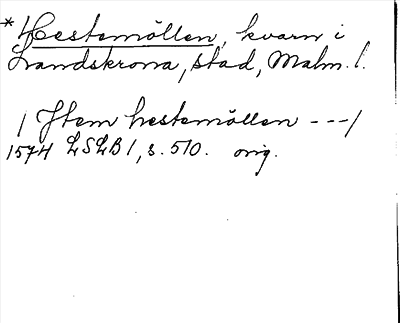 * Hestemöllen, kvarn i
Landskrona, stad, Malm. l.
/ Jtem hestemöllen - - - /
1574 LSLB 1, s. 510. orig.